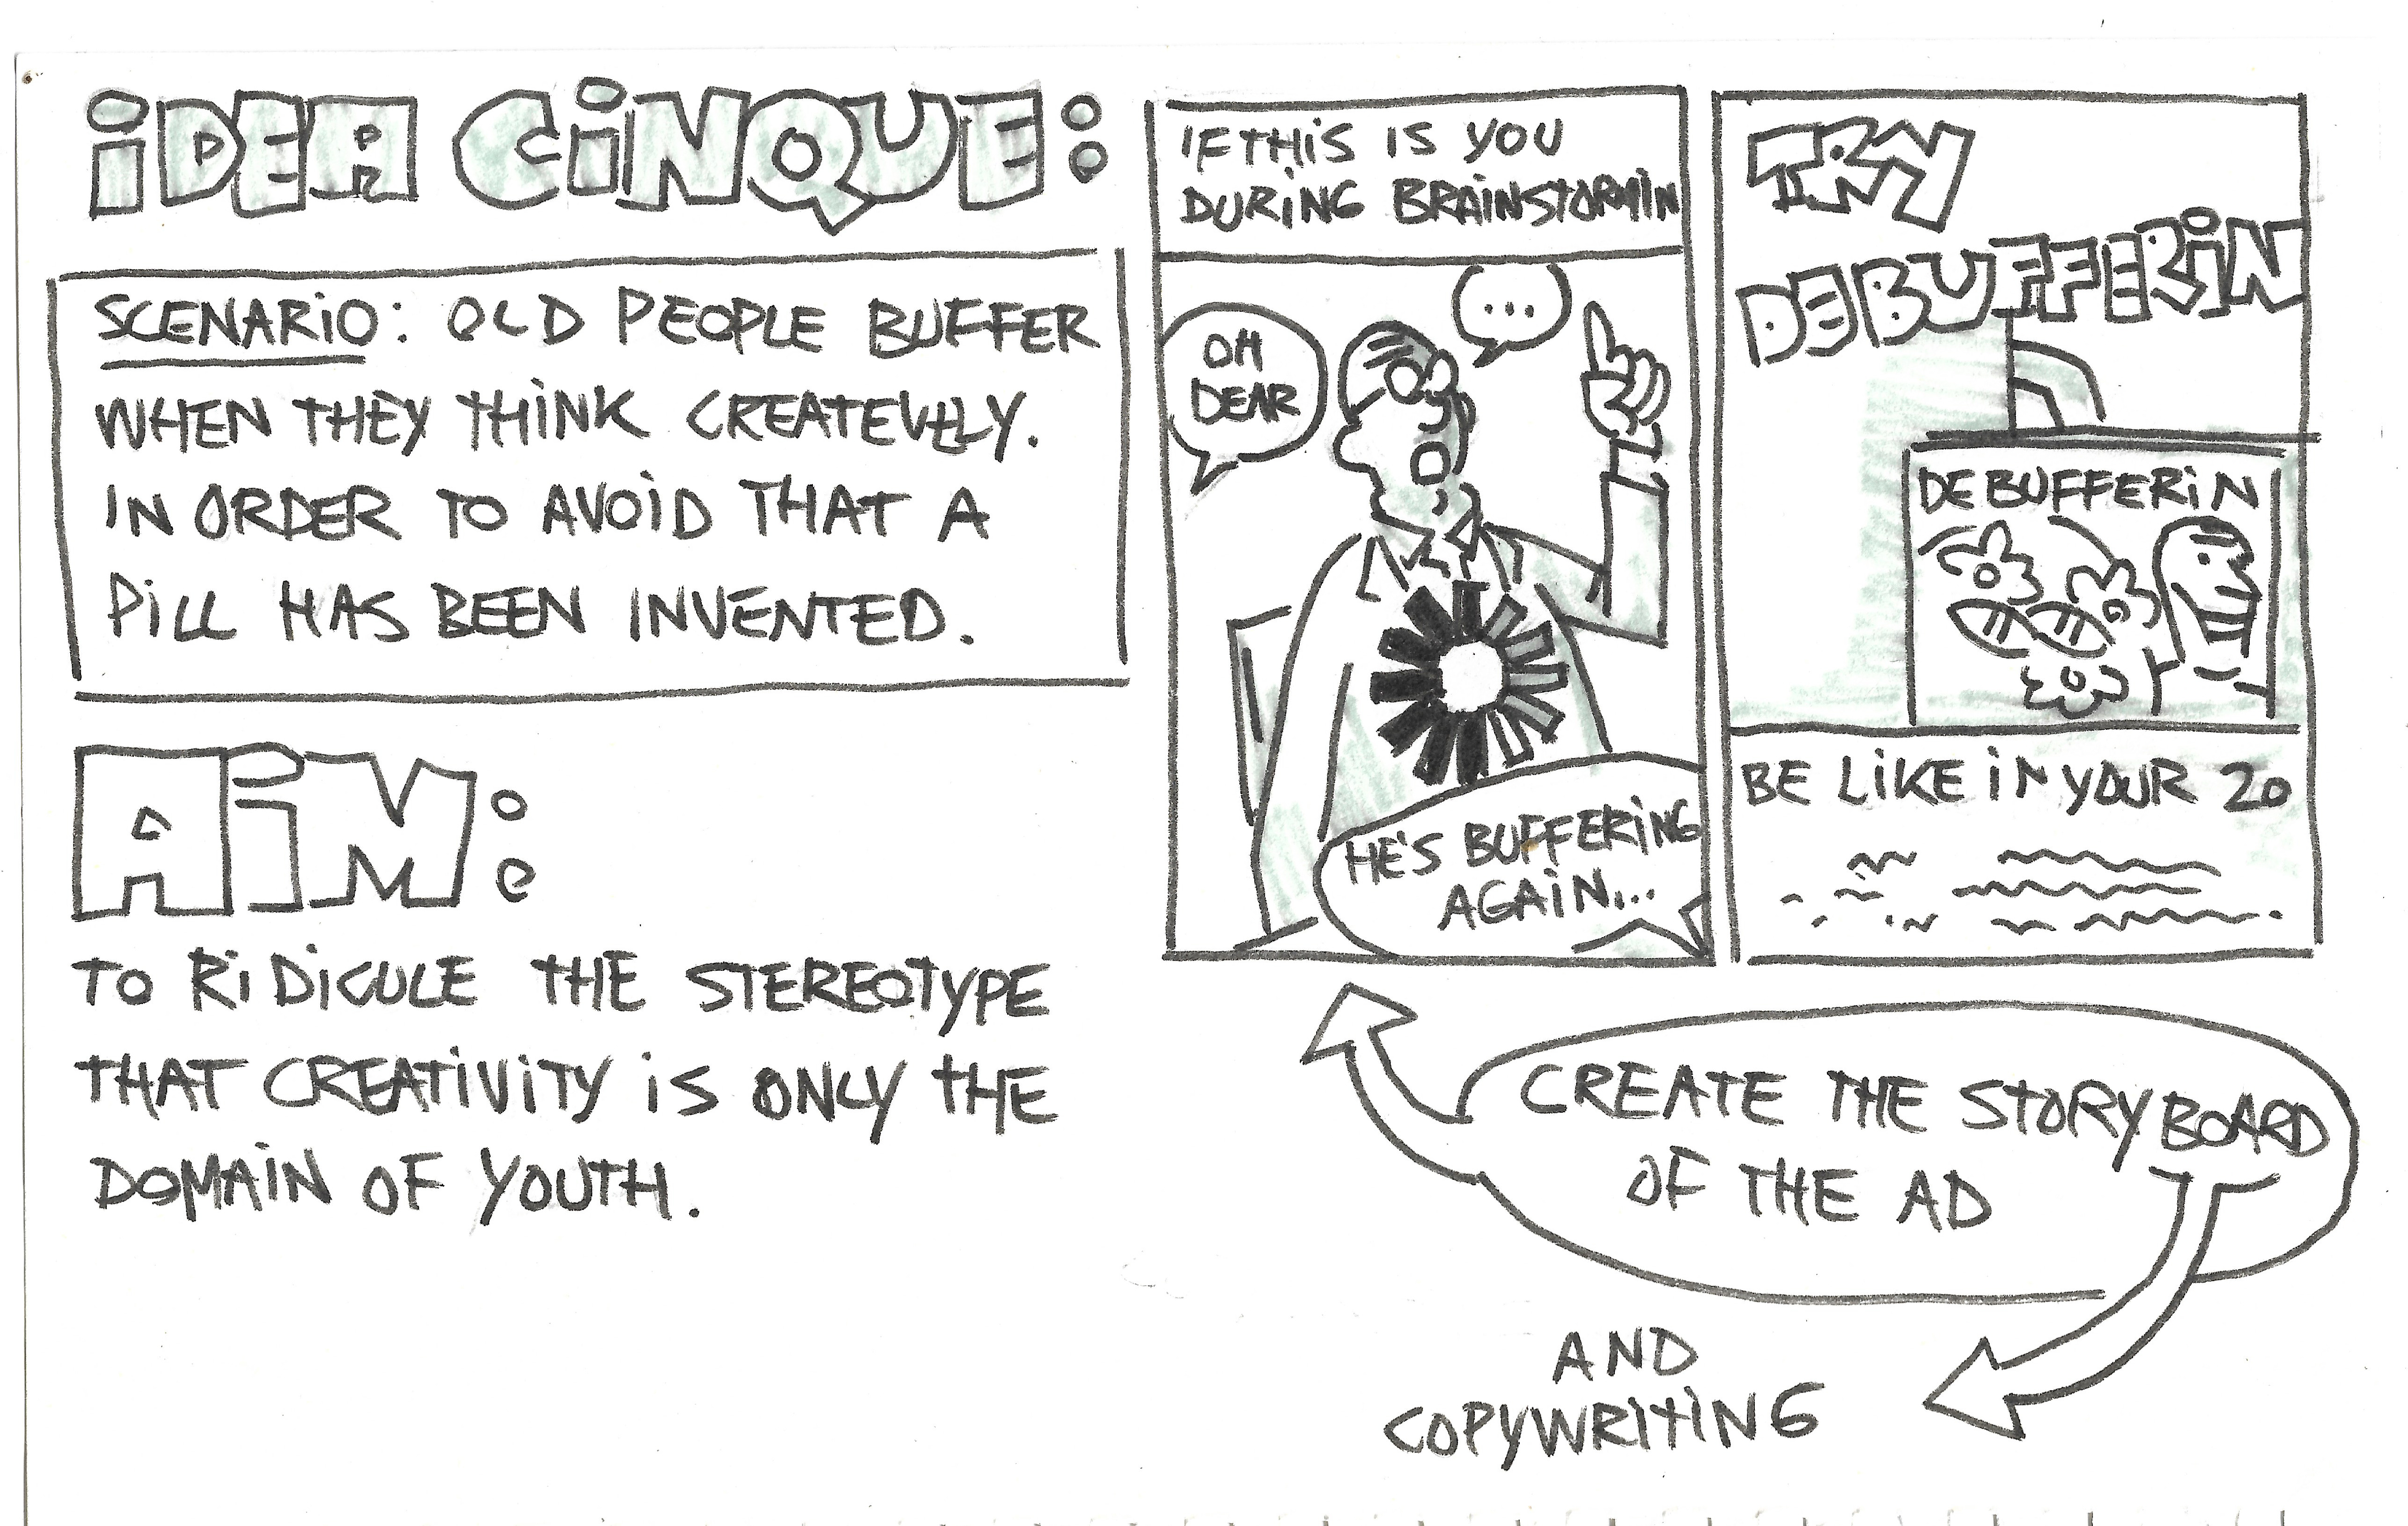 iDEA CiNQUE:
SCENARiO: OLD PEOPLE BUFFER
WHEN THEY THiNK CREATEVELY.
IN ORDER TO AVOiD THAT A
PiLL HAS BEEN INVENTED.
AiM:
TO RiDiCULE THE STEREOTYPE
THAT CREATiViTY iS ONLY THE
DOMAiN OF YOUTH.
IF THiS IS YOU
DURiNG BRAiNSTORMiN
OH
DEAR
...
HE'S BUFFERiNG
AGAiN...
TRY
DEBUFFERiN
DEBUFFERiN
BE LiKE iN YOUR 20
CREATE THE STORYBOARD
OF THE AD
AND
COPYWRiTiNG